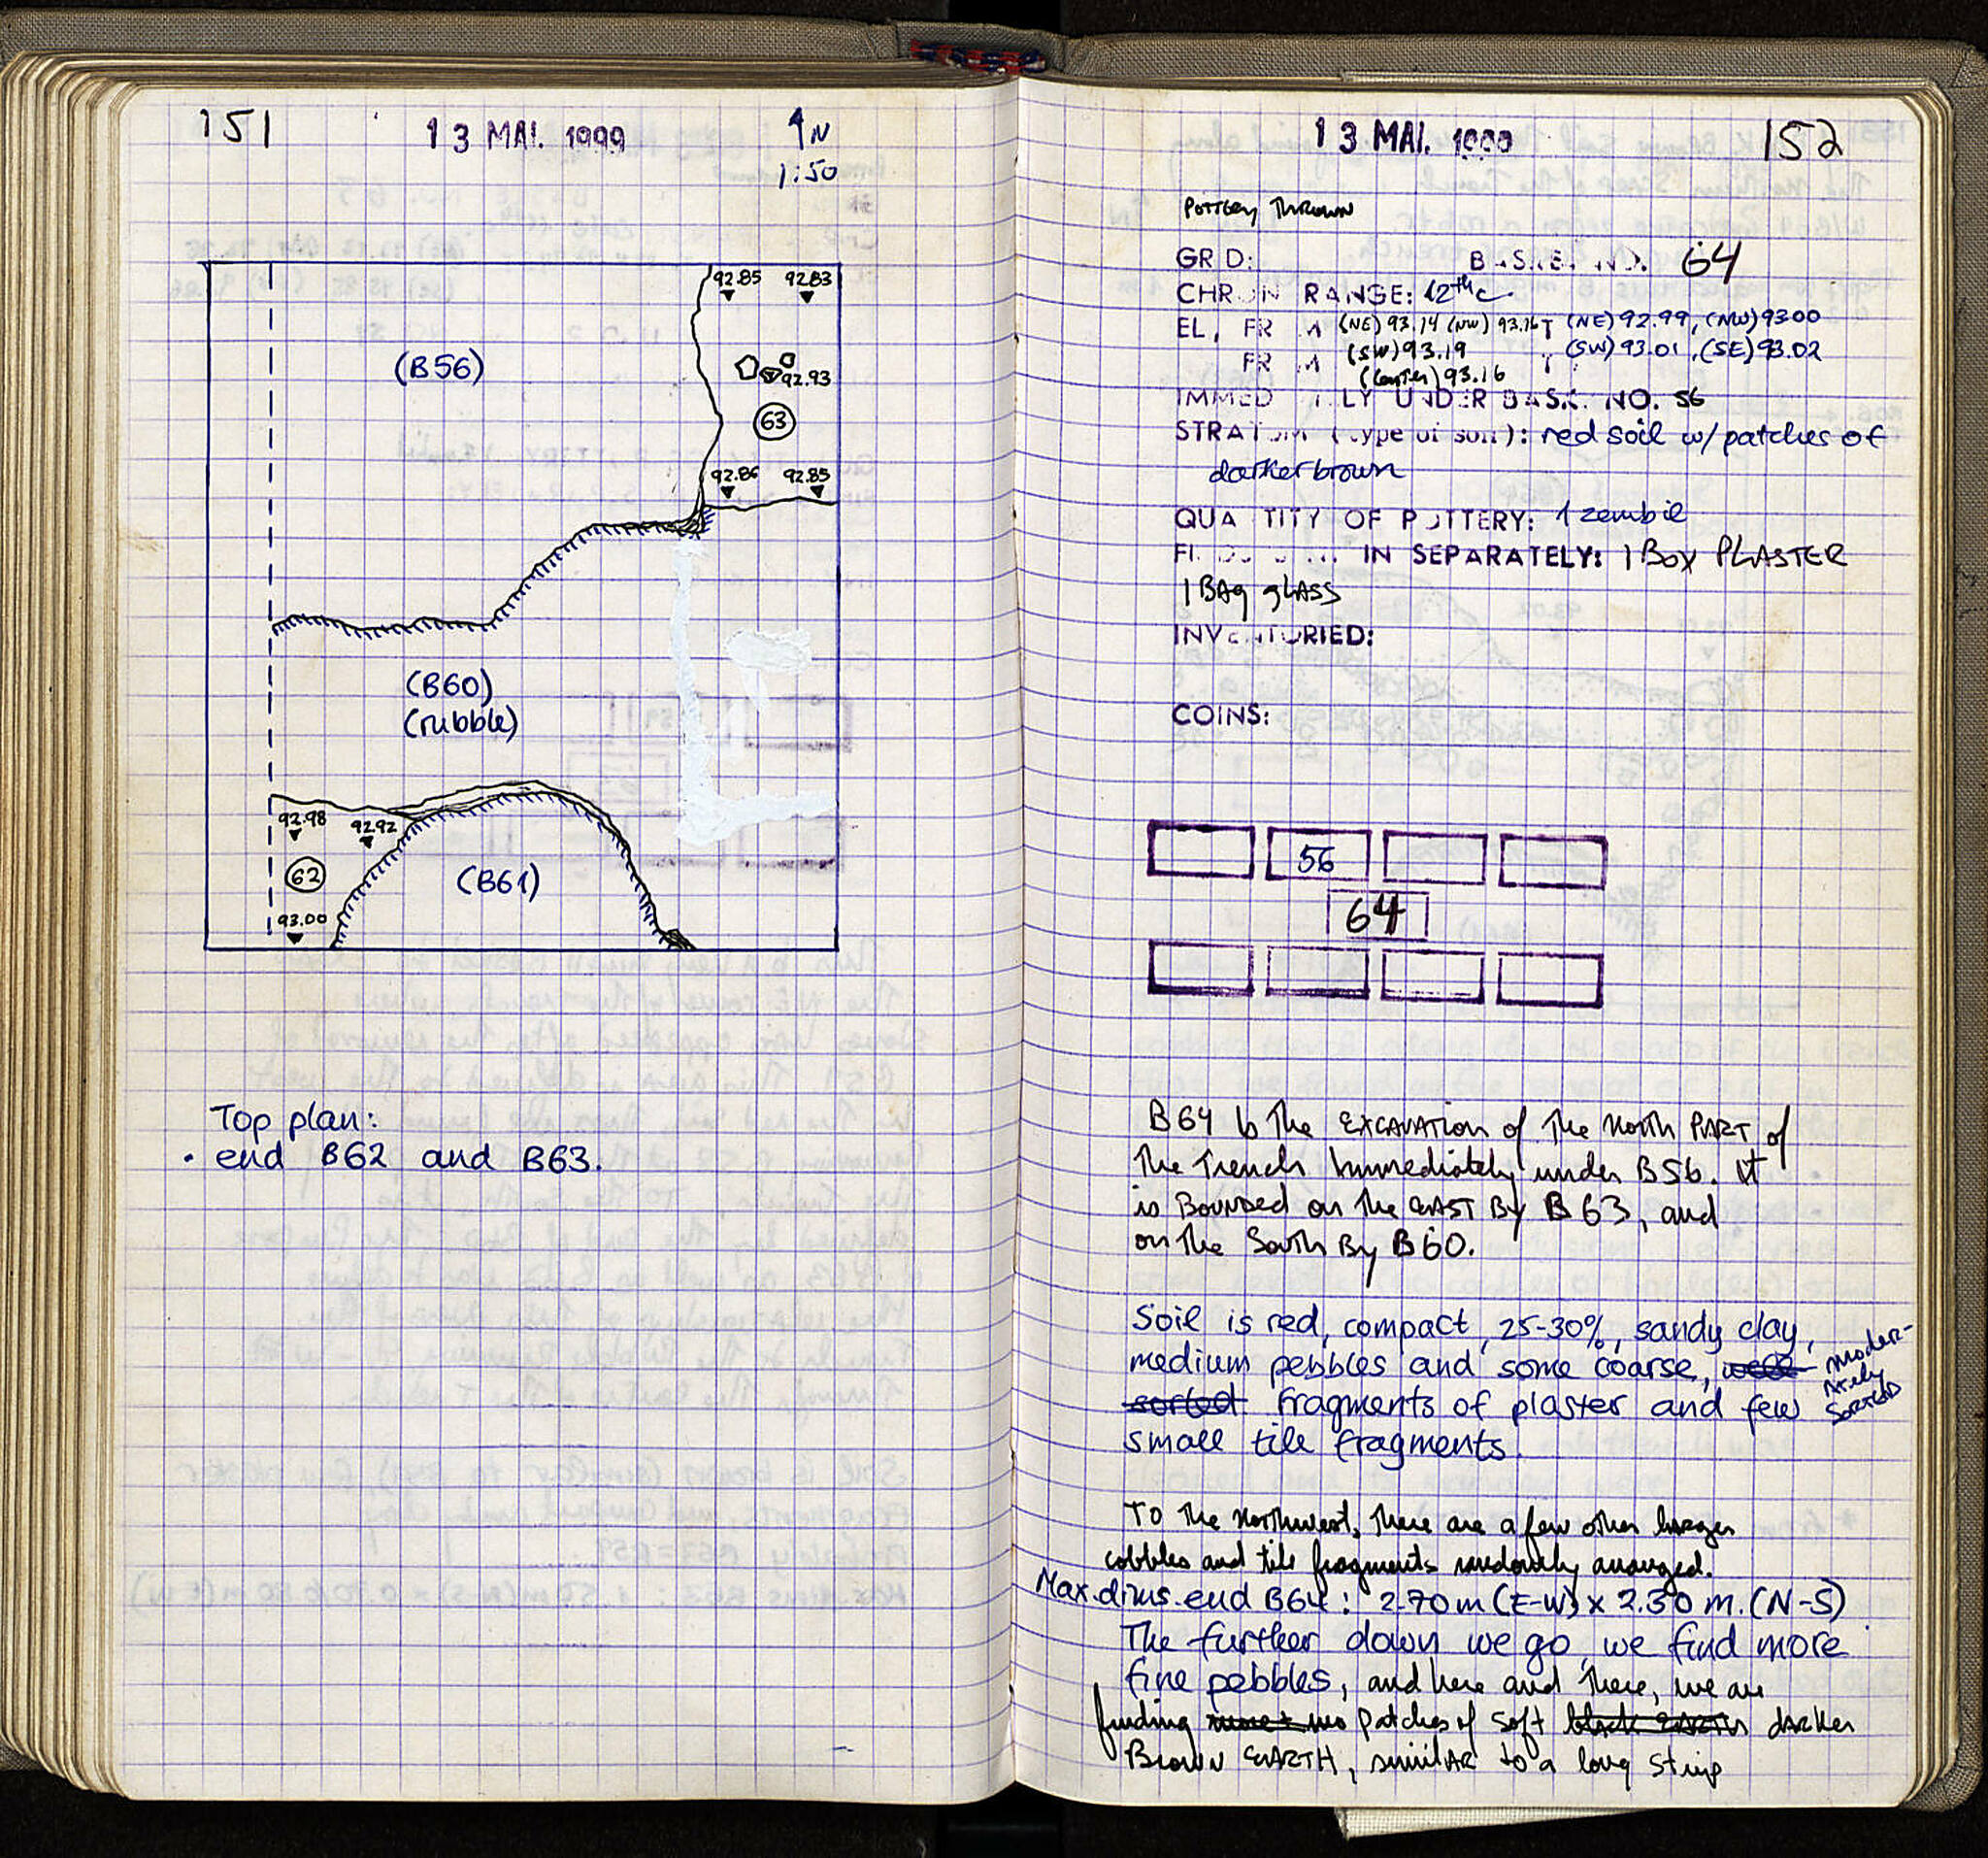 151
13 MAI. 1999
N
1:50
92.85 92.83
(B56)
92.93
63
92.86 92.85
(B60)
(rubble)
92.98 92.92
62
(B61)
93.00
Top plan:
• end B62 and B63.
13 MAI. 1999
152
Pottery Thrown
GRID: BASKET NO. 64
CHRON RANGE: 12th c.
EL, FROM (NE) 93.14 (NW) 93.16 T (NE) 92.99, (NW) 93.00
FROM (SW) 93.19 T (SW) 93.01, (SE) 93.02
(Center) 93.16
IMMEDIATELY UNDER BASK. NO. 56
STRATUM (type of soil): red soil w/ patches of
darker brown
QUANTITY OF POTTERY: 1 zembil
FINDS IN SEPARATELY: 1 Box PLASTER
1 BAg gLASS
INVENTORIED:
COINS:
56
64
B64 is the EXCAVATION of the North PART of
the Trench immediately under B56. It
is Bounded on the EAST By B63, and
on the South By B60.
Soil is red, compact, 25-30%, sandy clay,
medium pebbles and some coarse, well moder-
ately
sorted fragments of plaster and few SORTED
small tile fragments.
To the Northwest, there are a few other larger
cobbles and tile fragments randomly arranged.
Max.dims.end B64: 2.70m (E-W) x 2.30 m. (N-S)
The further down we go, we find more
fine pebbles, and here and there, we are
finding patches of soft black EARTH darker
Brown EARTH, similAR to a long strip